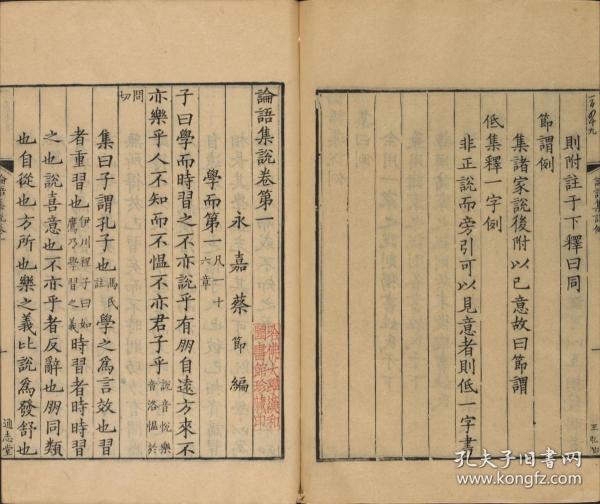 則附註于下釋曰同
節謂例
集諸家說後附以已意故曰節謂
低集釋一字例
非正說而旁引可以見意者則低一字書
論語集說卷第一
永嘉蔡節編
學而第一凡一十六章
子曰學而時習之不亦說乎有朋自遠方來不
亦樂乎人不知而不慍不亦君子乎說音悅樂音洛慍紆
問切
集曰子謂孔子也馮氏註學之為言效也習
者重習也伊川程子曰如鷹乃學習之義時習者時時習
之也說喜意也不亦乎者反辭也朋同類
也自從也方所也樂之義比說為發舒也
通志堂
哈佛大學漢和圖書館珍藏印
孔夫子旧书网
www.kongfz.com